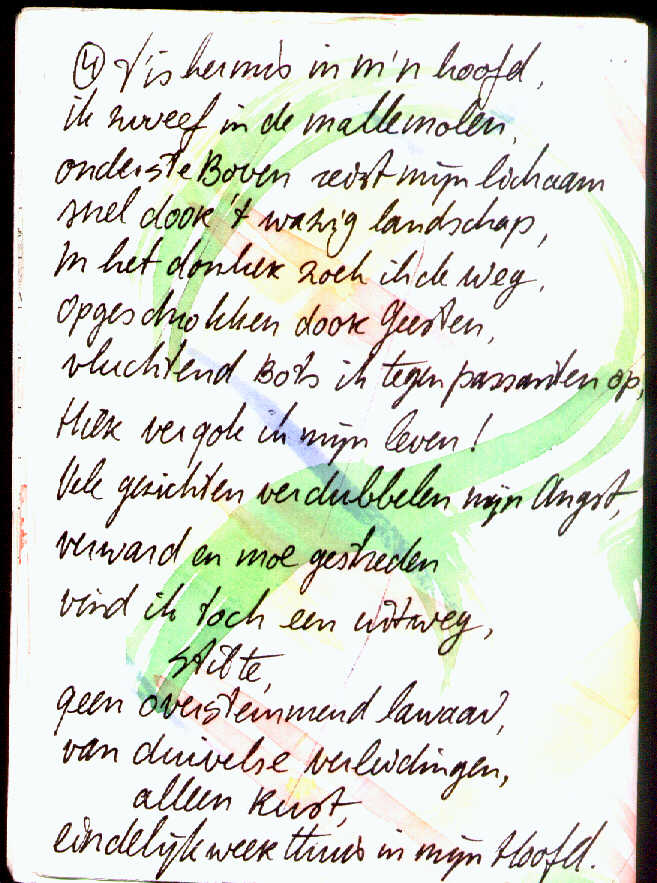 ④ 't is kermis in m'n hoofd,
ik zweef in de mallemolen,
onderste Boven reist mijn lichaam
snel door 't wazig landschap,
In het donker zoek ik de weg,
opgeschrokken door Geesten,
vluchtend Bots ik tegen passanten op,
Hier vergok ik mijn leven!
Vele gezichten verdubbelen mijn Angst,
verward en moe gestreden
vind ik toch een uitweg,
stilte,
geen overstemmend lawaai,
van duivelse verleidingen,
alleen Rust,
eindelijk weer thuis in mijn Hoofd.